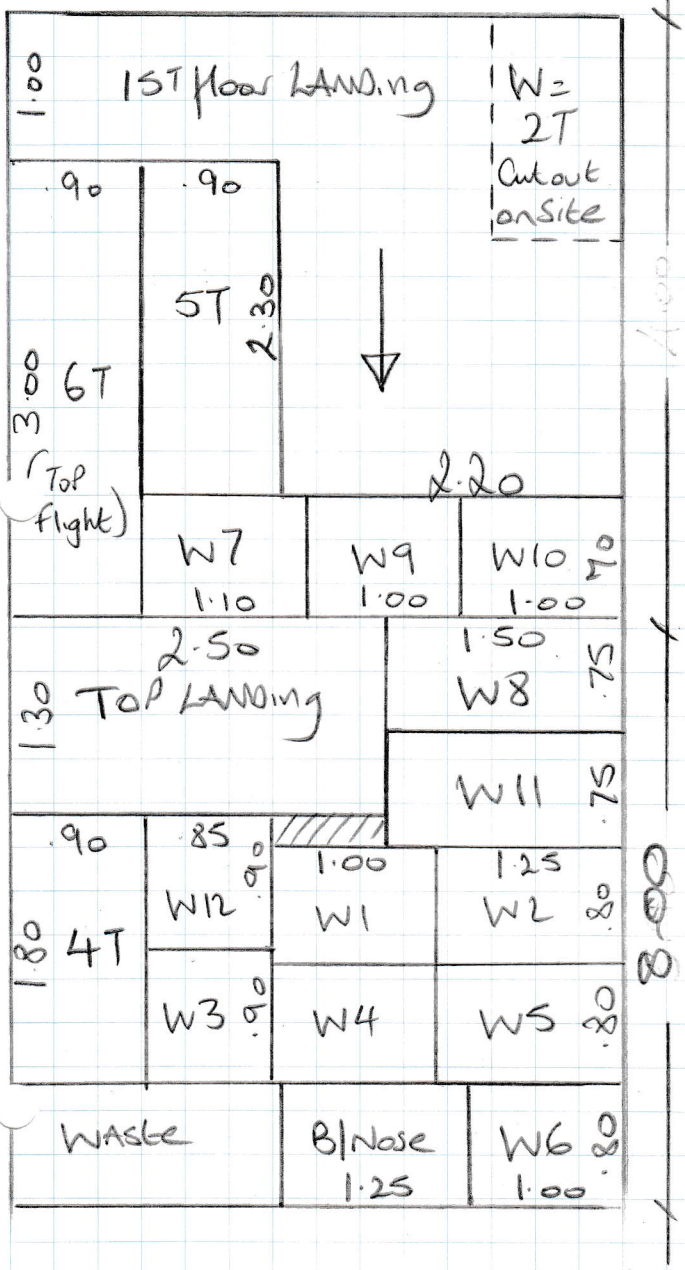 1.00
1ST floor LANDing
W=
2T
Cut out
onSite
.90
.90
5T
2.30
3.00
6T
(Top
flight)
4.00
2.20
W7
1.10
W9
1.00
W10
1.00
.70
2.50
TOP LANDing
1.30
1.50
W8
.75
W11
.75
.90
4T
1.80
.85
W12
.90
W3
.90
1.00
W1
1.25
W2
.80
W4
W5
.80
8.00
WASte
B/Nose
1.25
W6
1.00
.80